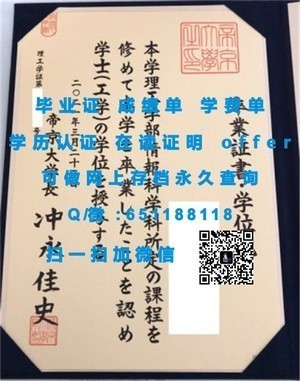 卒業証書・学位
本学理工学部情報科学科所定の課程を
修めて本学を卒業したことを認め
学士(工学)の学位を授与する
二〇一一年三月二十
帝京大学長 冲永佳史
理工学証第
号
毕业证 成绩单 学费单
学历认证 在读证明 offer
可做网上存档永久查询
Q/微:653188118
扫一扫加微信